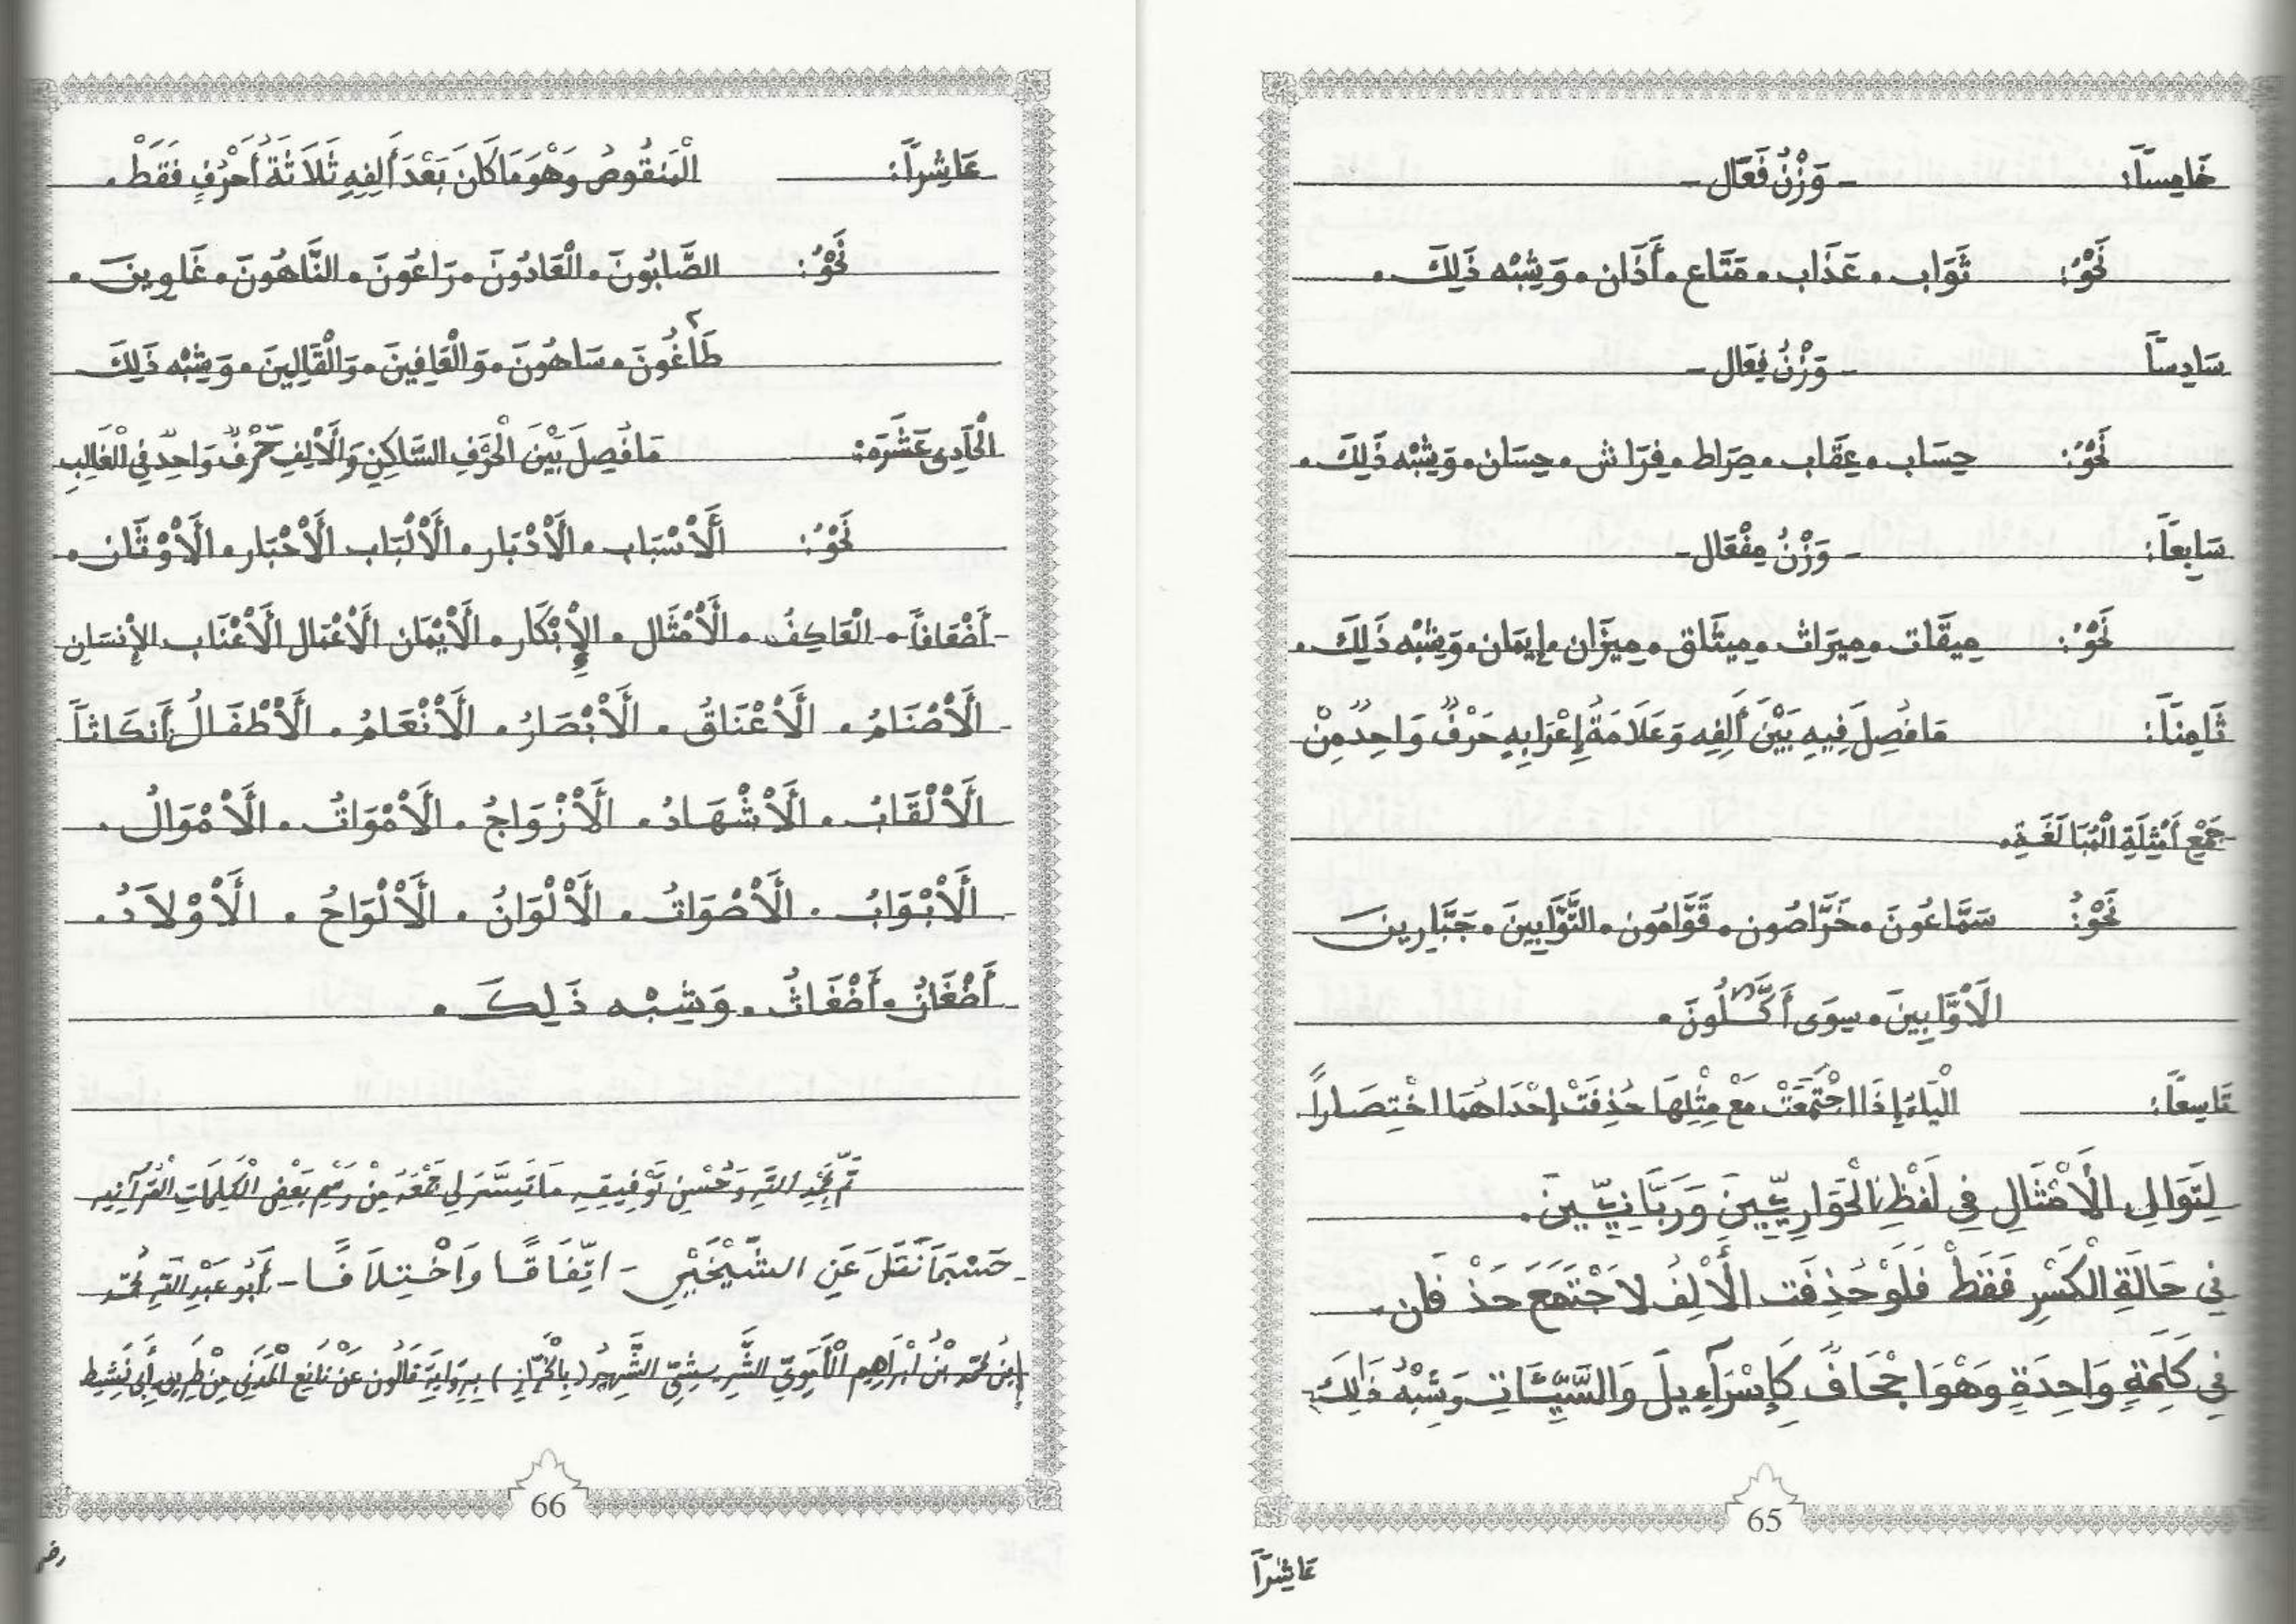 خَامِساً: - وَزْنُ فَعَال -
نَحْوُ: ثَوَاب. عَذَاب. مَتَاع. أَذَان. وَشِبْه ذَلِكَ.
سَادِساً - وَزْنُ فِعَال -
نَحْوُ: حِسَاب. عِقَاب. صِرَاط. فِرَاش. حِسَان. وَشِبْه ذَلِكَ.
سَابِعاً: - وَزْنُ مِفْعَال -
نَحْوُ: مِيقَات. مِيرَاث. مِيثَاق. مِيزَان. إِيمَان. وَشِبْه ذَلِكَ.
ثَامِناً: مَا فُصِلَ فِيهِ بَيْنَ أَلِفِهِ وَعَلَامَةُ إِعْرَابِهِ حَرْفٌ وَاحِدٌ مِنْ
جَمْعِ أَمْثِلَةِ الْمُبَالَغَةِ.
نَحْوُ: سَمَّاعُونَ. خَرَّاصُون. قَوَّامُون. التَّوَّابِينَ. جَبَّارِينَ
الَاوَّابِينَ. سِوَى أَكَّـٰلُونَ.
تَاسِعاً: الْيَاءُ إِذَا اجْتَمَعَتْ مَعْ مِثْلِهَا حُذِفَتْ إِحْدَاهُمَا اخْتِصَاراً
لِتَوَالِي الَامْثَالِ فِي لَفْظِ الْحَوَارِيِّينَ وَرَبَّانِيِّينَ.
فِي حَالَةِ الْكَسْرِ فَقَطْ فَلَوْ حُذِفَت الْأَلِفُ لَاجْتَمَعَ حَذْفَان.
فِي كَلِمَةٍ وَاحِدَةٍ وَهْوَ اجْحَافٌ كَإِسْرَآءِيلَ وَالسَّيِّئَاتِ وَشِبْهُ ذَلِكَ
65
عَاشِراً
عَاشِراً: الْمَنقُوصُ وَهْوَ مَا كَانَ بَعْدَ أَلِفِهِ ثَلَاثَةُ أَحْرُفٍ فَقَطْ.
نَحْوُ: الصَّابُونَ. الْعَادُونَ. رَاعُونَ. النَّاهُونَ. غَاوِينَ.
طَاغُونَ. سَاهُونَ. وَالْعَافِينَ. وَالْقَالِينَ. وَشِبْه ذَلِكَ
الْحَادِي عَشَرَة: مَا فُصِلَ بَيْنَ الْحَرْفِ السَّاكِنِ وَالْأَلِفِ حَرْفٌ وَاحِدٌ فِي الْغَالِبِ
نَحْوُ: الَأسْبَاب. الَأدْبَار. الَألْبَاب الَأحْبَار. الَأوْثَان.
أَضْعَافاً. الْعَاكِفُ. الَأمْثَال. الِإبْكَار. الَأيْمَان الَأعْمَال الَأعْنَاب الإنسَان
الَأصْنَامُ. الَأعْنَاقُ. الَأبْصَارُ. الَأنْعَامُ. الَأطْفَالُ أَنكَاثاً
الَألْقَابُ. الَأشْهَادُ. الَأزْوَاجُ. الَأمْوَاتُ. الَأمْوَالُ.
الَأبْوَابُ. الَأصْوَاتُ. الَألْوَانُ. الَألْوَاحُ. الَأوْلَادُ.
أَضْغَانُ. أَضْغَاثُ. وَشِبْه ذَلِكَ.
تَمَّ بِحَمْدِ اللَّهِ وَحُسْنِ تَوْفِيقِهِ مَا تَيَسَّرَ لِي جَمْعُهُ مِنْ رَسْمِ بَعْضِ الْكَلِمَاتِ الْقُرْآنِيه
حَسْبَمَا نُقِلَ عَنِ الشَّيْخَيْنِ - اتِّفَاقًا وَاخْتِلَافًا - أَبُو عَبْدِ اللَّهِ مُحَمَّد
ابْنُ مُحَمَّد بْنُ ابْرَاهِيم الْأُمَوِيّ الشَّرِيشِيّ الشَّهِيرُ (بِالْخَرَّازِ) بِرِوَايَةِ قَالُون عَنْ نَافِعِ الْمَدَنِي مِنْ طَرِيقِ أَبِي نَشِيط
66